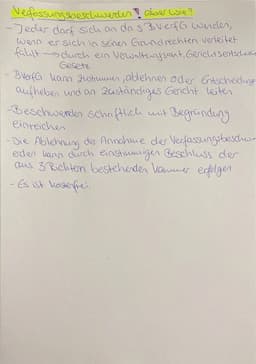 Verfassungsbeschwerden! Aber wie?
- Jeder darf sich an das BVerfG wenden,
wenn er sich in seinen Grundrechten verletzt
fühlt → durch ein Verwaltungsamt, Gerichtsentscheidung
Gesetz
- BVerfG kann zustimmen, ablehnen oder Entscheidungen
aufheben und an zuständiges Gericht leiten
- Beschwerden schriftlich mit Begründung
einreichen
- Die Ablehnung der Annahme der Verfassungsbeschw-
erden kann durch einstimmigen Beschluss der
aus 3 Richtern bestehenden Kammer erfolgen
- Es ist kostenfrei